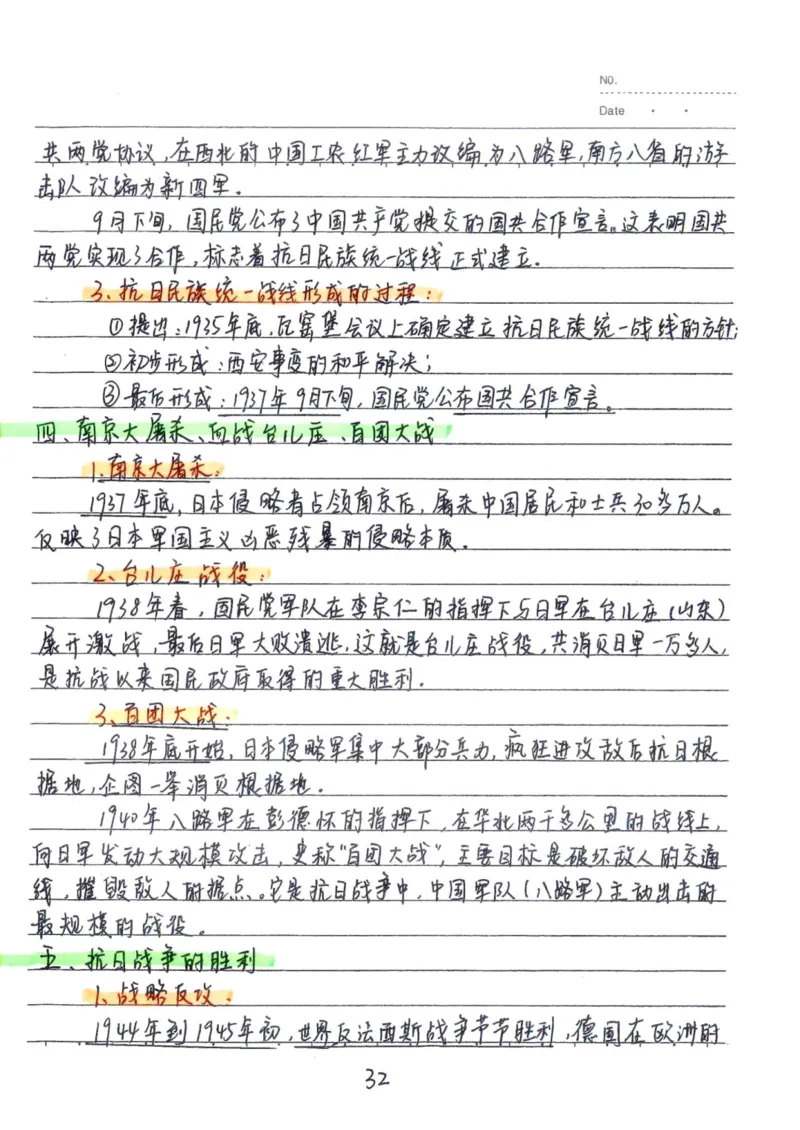 No.
Date
共两党协议,在西北的中国工农红军主力改编为八路军,南方八省的游
击队改编为新四军。
9月下旬,国民党公布了中国共产党提交的国共合作宣言。这表明国共
两党实现了合作,标志着抗日民族统一战线正式建立.
3、抗日民族统一战线形成的过程:
①提出:1935年底,瓦窑堡会议上确定建立抗日民族统一战线的方针;
②初步形成:西安事变的和平解决;
③最后形成:1937年9月下旬,国民党公布国共合作宣言。
四、南京大屠杀、血战台儿庄、百团大战
1.南京大屠杀:
1937年底,日本侵略者占领南京后,屠杀中国居民和士兵30多万人。
反映了日本军国主义凶恶残暴的侵略本质.
2、台儿庄战役:
1938年春,国民党军队在李宗仁的指挥下与日军在台儿庄(山东)
展开激战,最后日军大败溃逃.这就是台儿庄战役,共消灭日军一万多人,
是抗战以来国民政府取得的重大胜利.
3、百团大战.
1938年底开始,日本侵略军集中大部分兵力,疯狂进攻敌后抗日根
据地,企图一举消灭根据地.
1940年八路军在彭德怀的指挥下,在华北两千多公里的战线上,
向日军发动大规模攻击,史称“百团大战”,主要目标是破坏敌人的交通
线,摧毁敌人的据点。它是抗日战争中,中国军队(八路军)主动出击的
最规模的战役。
五、抗日战争的胜利
1、战略反攻.
1944年到1945年初,世界反法西斯战争节节胜利,德国在欧洲的
32